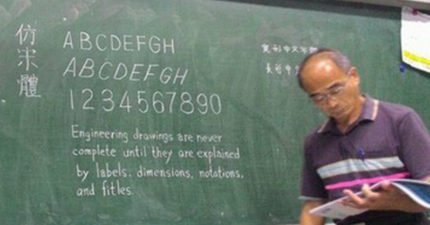 仿宋體
ABCDEFGH
ABCDEFGH
1234567890
Engineering drawings are never
complete until they are explained
by labels, dimensions, notations,
and titles.